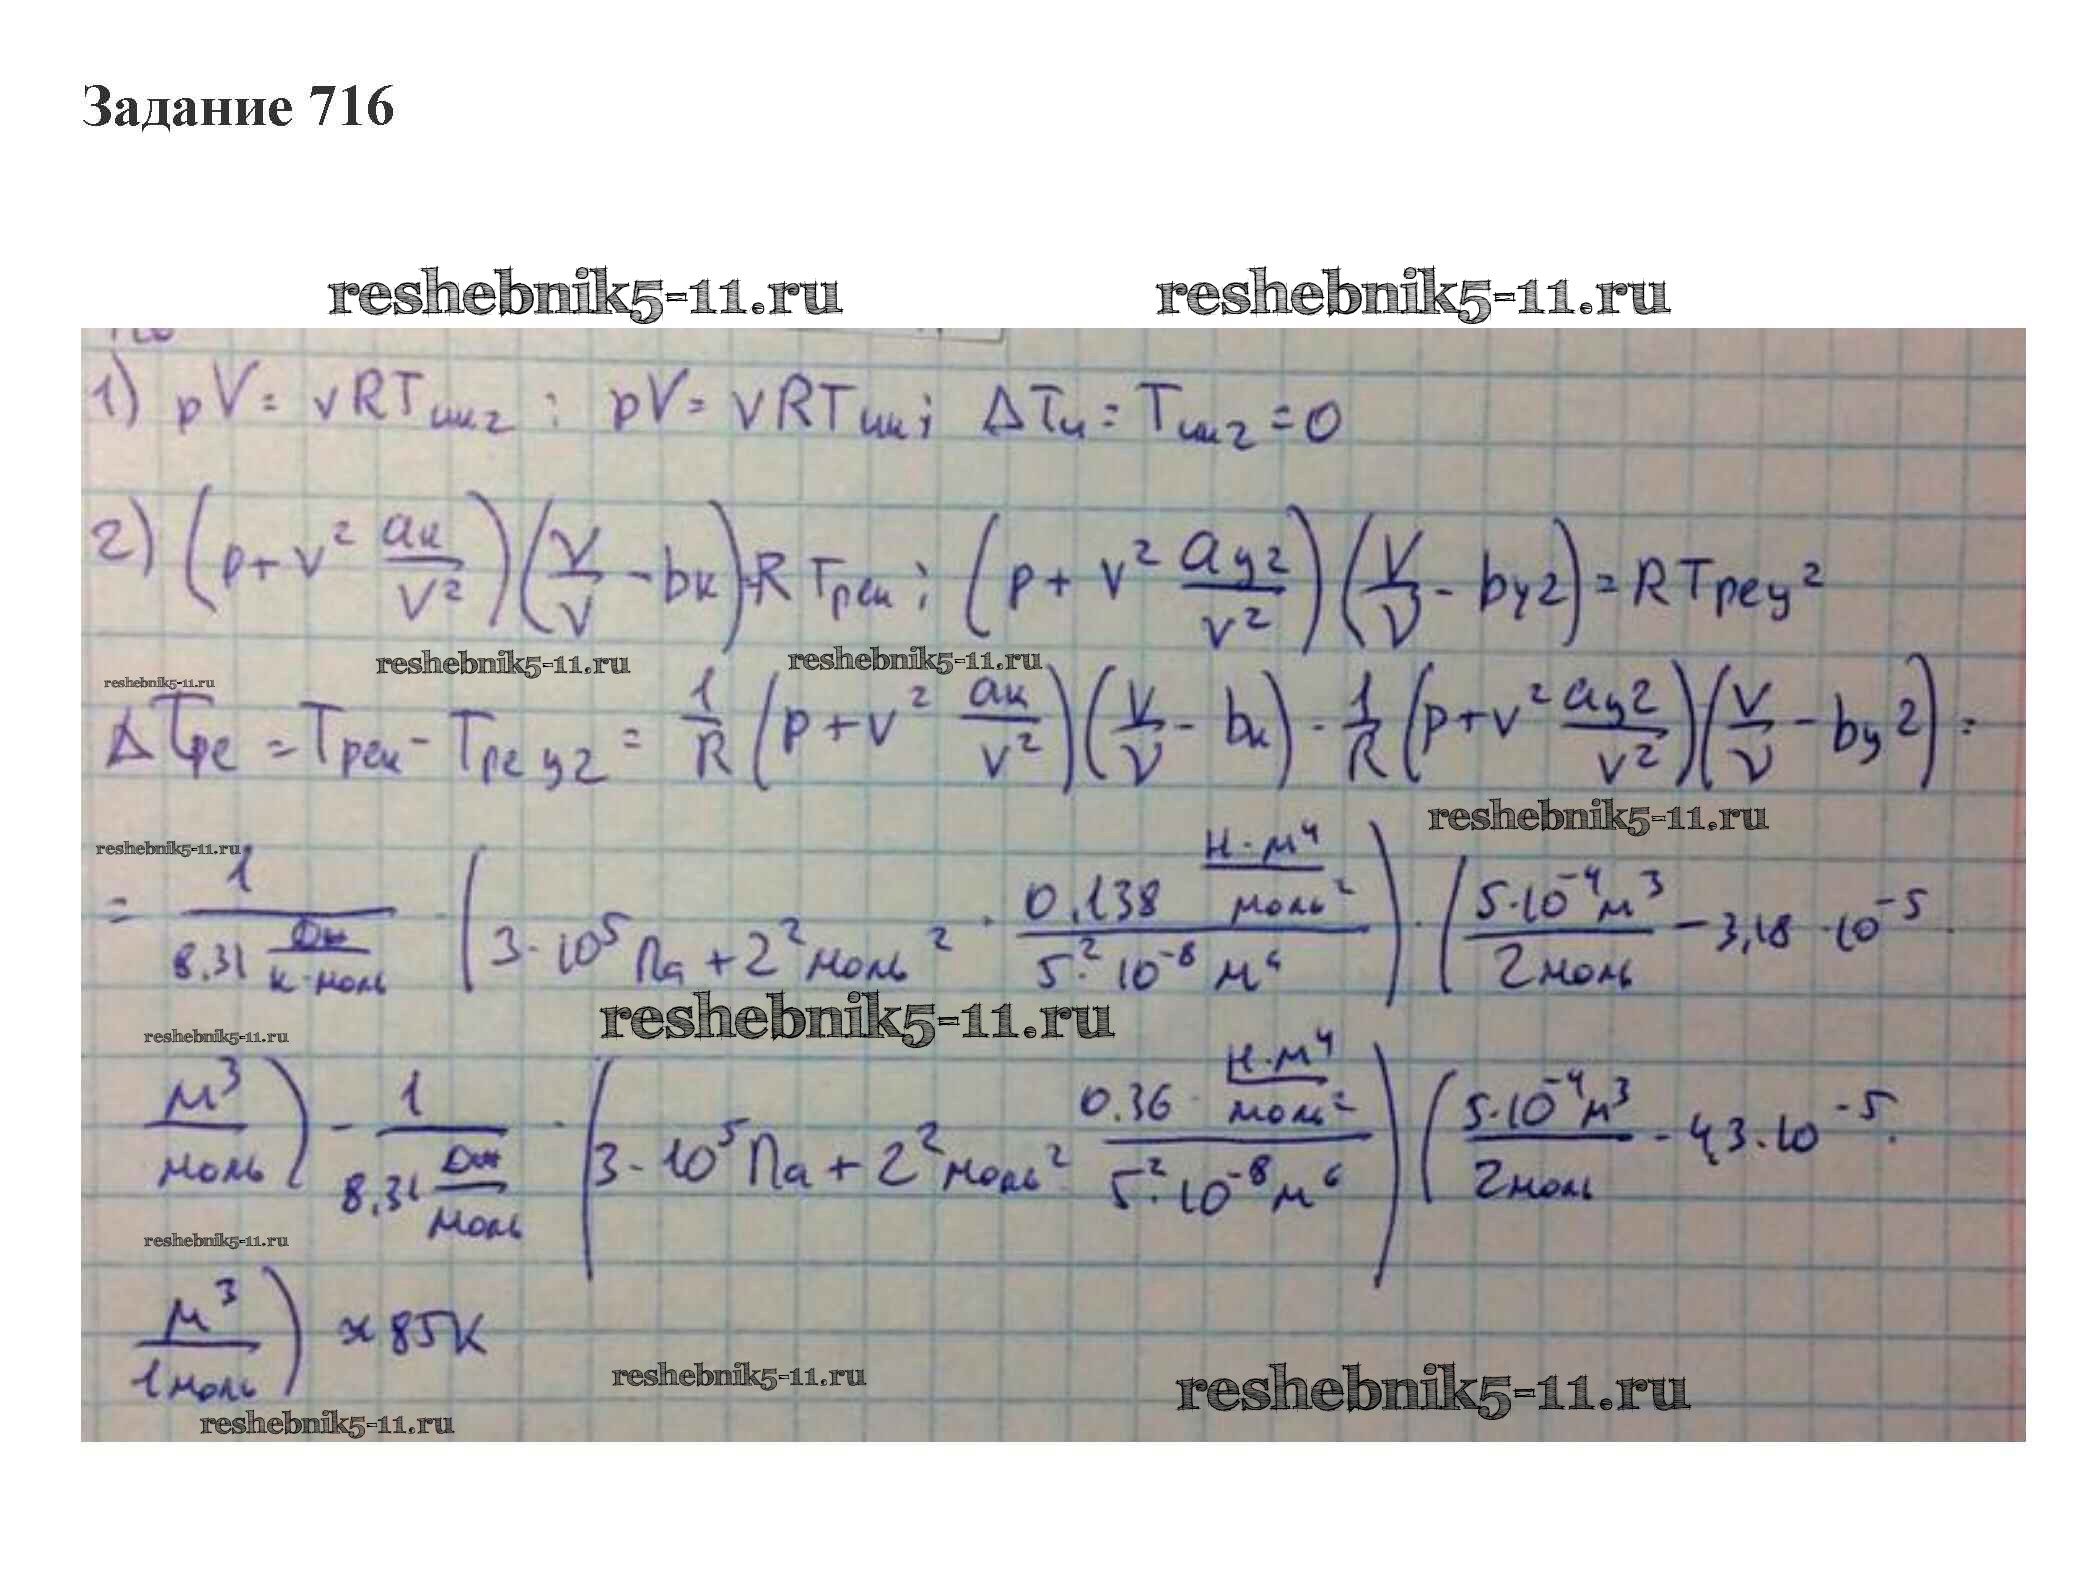 Задание 716
reshebnik5-11.ru reshebnik5-11.ru
1) pV = νRT ик2 ; pV = νRT ик; ΔTи = Tик2 = 0
2) (p + ν² aк/V²)(V/ν - bк) = RTрек; (p + ν² aу2/V²)(V/ν - bу2) = RTреу2
reshebnik5-11.ru reshebnik5-11.ru
reshebnik5-11.ru
ΔTре = Tрек - Tреу2 = 1/R (p + ν² aк/V²)(V/ν - bк) - 1/R (p + ν² aу2/V²)(V/ν - bу2) =
reshebnik5-11.ru
reshebnik5-11.ru
= 1/(8,31 Дж/К·моль) · (3·10⁵ Па + 2² моль² · 0,138 Н·м⁴/моль² / 5²·10⁻⁸ м⁶) · (5·10⁻⁴ м³/2 моль - 3,18·10⁻⁵ ·
reshebnik5-11.ru
reshebnik5-11.ru
м³/моль) - 1/(8,31 Дж/моль) · (3·10⁵ Па + 2² моль² 0,36 Н·м⁴/моль² / 5²·10⁻⁸ м⁶) (5·10⁻⁴ м³/2 моль - 4,3·10⁻⁵ ·
reshebnik5-11.ru
м³/1 моль) ≈ 85К
reshebnik5-11.ru reshebnik5-11.ru
reshebnik5-11.ru